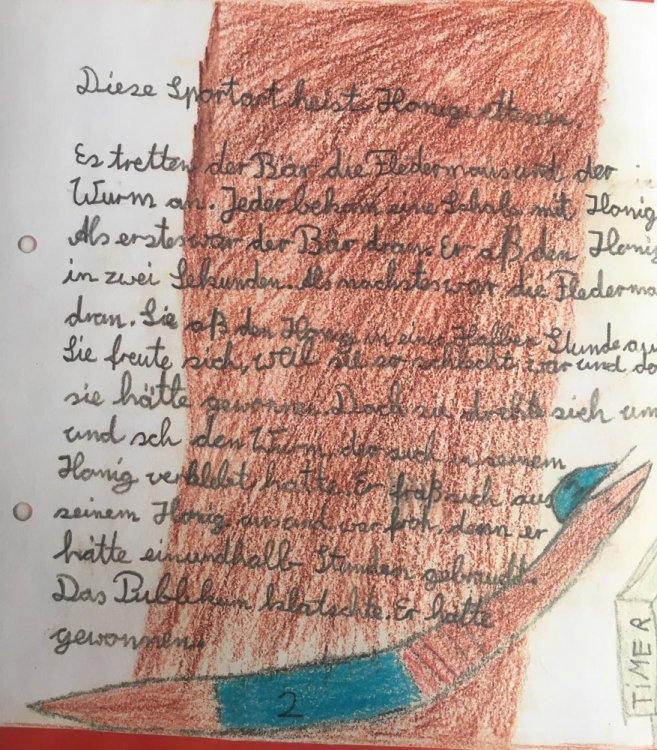 Diese Sportart heist Honig
Es tretten der Bär die Fledermaus und der
Wurm an. Jeder bekam eine Schale mit Honig
Als erstes war der Bär dran. Er aß den Honig
in zwei Sekunden. Als nächstes war die Flederma
dran. Sie aß den Honig in einer Halben Stunde au
Sie freute sich, weil sie so schlecht war und da
sie hätte gewonnen. Doch sie drehte sich um
und sah den Wurm, der sich in seinem
Honig verklebt hatte. Er fraß sich aus
seinem Honig aus und war froh, denn er
hätte einundhalb Stunden gebraucht.
Das Publikum klatschte. Er hatte
gewonnen.
2
TIMER